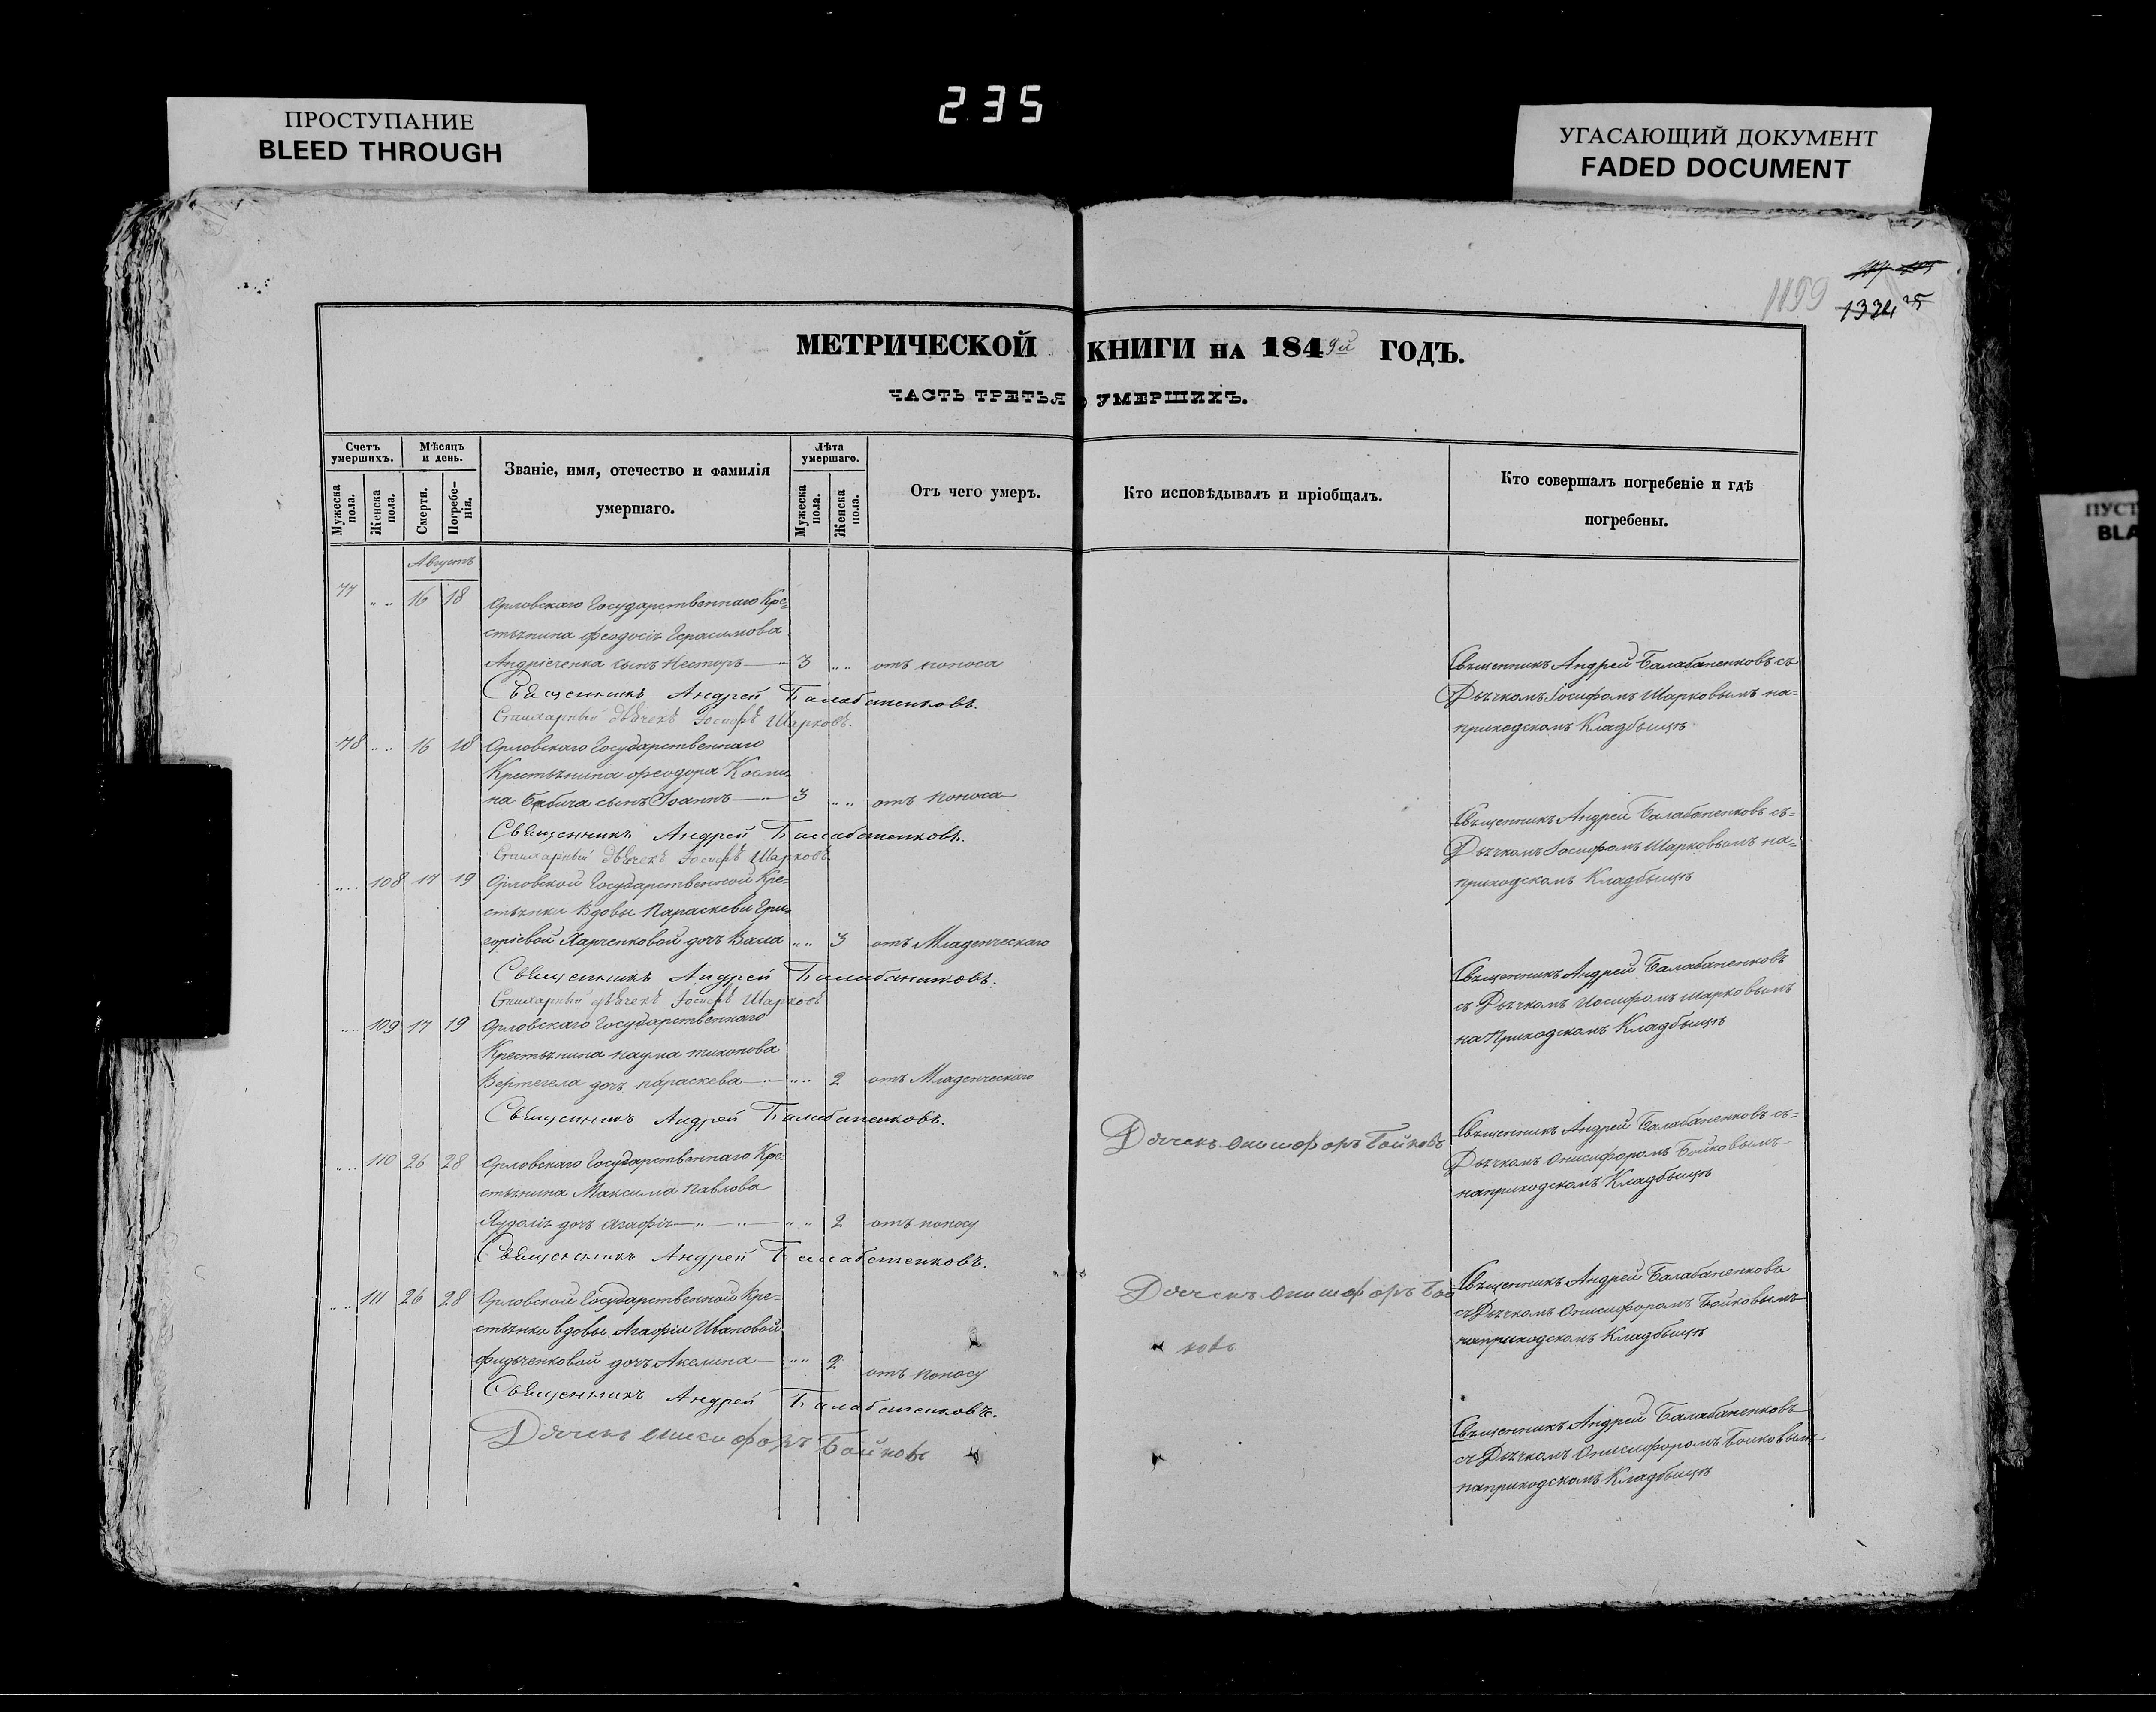 235
ПРОСТУПАНИЕ
BLEED THROUGH
УГАСАЮЩИЙ ДОКУМЕНТ
FADED DOCUMENT
ПУСТ
BLA
1199
1324 25
МЕТРИЧЕСКОЙ КНИГИ НА 1849й ГОДЪ.
ЧАСТЬ ТРЕТЬЯ О УМЕРШИХЪ.
Счетъ умершихъ.
Мужеска пола.
Женска пола.
Мѣсяцъ и день.
Смерти.
Погребе-нія.
Званіе, имя, отечество и фамилія
умершаго.
Лѣта умершаго.
Мужеска пола.
Женска пола.
Отъ чего умеръ.
Кто исповѣдывалъ и пріобщалъ.
Кто совершалъ погребеніе и гдѣ
погребены.
Августъ
77 „ „ 16 18 Орловскаго Государственнаго Кре=
стьянина Феодосія Герасимова
Андріеченка сынъ Несторъ — 3 „ „ отъ поноса
Священникъ Андрей Балабаненковъ.
Стихарный дьячекъ Іосифъ Шарковъ.
Священникъ Андрей Балабаненковъ съ
Дьячкомъ Іосифомъ Шарковымъ на=
приходскомъ Кладбищѣ
78 „ „ 16 18 Орловскаго Государственнаго
Крестьянина Феодора Косми
на Бабича сынъ Іоаннъ — 3 „ „ отъ поноса
Священникъ Андрей Балабаненковъ.
Стихарный дьячекъ Іосифъ Шарковъ.
Священникъ Андрей Балабаненковъ съ=
Дьячкомъ Іосифомъ Шарковымъ на=
приходскомъ Кладбищѣ
„ „ 108 17 19 Орловской Государственной Кре=
стьянки Вдовы Параскеви Григ
оріевой Харченковой дочь Васса „ „ 3 отъ Младенческаго
Священникъ Андрей Балабаненковъ.
Стихарный дьячекъ Іосифъ Шарковъ
Священникъ Андрей Балабаненковъ
съ Дьячкомъ Иосифомъ Шарковымъ
на Приходскомъ Кладбищѣ
„ „ 109 17 19 Орловскаго Государственнаго
Крестьянина Наума Тихонова
Вертегела дочь Параскева — „ „ 2 отъ Младенческаго
Священникъ Андрей Балабаненковъ.
Дячекъ Онисифоръ Бойковъ
Священникъ Андрей Балабаненковъ съ=
Дьячкомъ Онисифоромъ Бойковымъ
наприходскомъ Кладбищѣ
„ „ 110 26 28 Орловскаго Государственнаго Кре=
стьянина Максима Павлова
дочь Агафія — „ „ 2 отъ поносу
Священникъ Андрей Балабаненковъ.
Дячекъ Онисифоръ Бой
ковъ
Священникъ Андрей Балабаненковъ
съ Дьячкомъ Онисифоромъ Бойковымъ
наприходскомъ Кладбищѣ
„ „ 111 26 28 Орловской Государственной Кре=
стьянки вдовы Агафіи Ивановой
дочь Акелина — „ „ 2 отъ поносу
Священникъ Андрей Балабаненковъ.
Дячекъ Онисифоръ Бойковъ
Священникъ Андрей Балабаненковъ
съ Дьячкомъ Онисифоромъ Бойковымъ
наприходскомъ Кладбищѣ